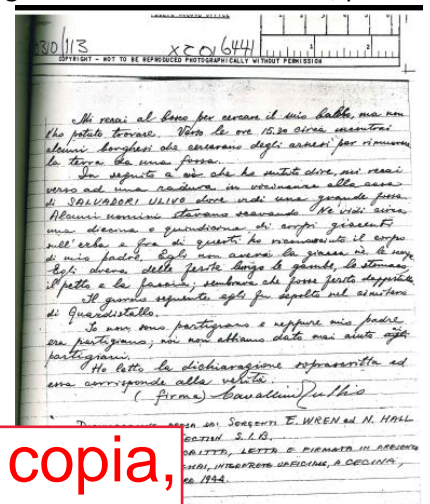 310/113
XC 01 6441
COPYRIGHT - NOT TO BE REPRODUCED PHOTOGRAPHICALLY WITHOUT PERMISSION
Mi recai al bosco per cercare il mio babbo, ma non
l'ho potuto trovare. Verso le ore 15.30 circa incontrai
alcuni borghesi che cercavano degli arnesi per rimuovere
la terra da una fossa.
In seguito a ciò che ho sentito dire, mi recai
verso ad una radura in vicinanza alla casa
di SALVADORI ULIVO dove vidi una grande fossa.
Alcuni uomini stavano scavando. Ne vidi circa
una decina o quindicina, di corpi giacenti
sull'erba e fra di questi ho riconosciuto il corpo
di mio padre. Egli non aveva la giacca nè le scarpe
Egli aveva delle ferite lungo le gambe, lo stomaco
il petto e la faccia; sembrava che fosse ferito dappertutto.
Il giorno seguente egli fu sepolto nel cimitero
di Guardistallo.
Io non sono partigiano e neppure mio padre
era partigiano; noi non abbiamo dato mai aiuto agli
partigiani.
Ho letto la dichiarazione soprascritta ed
essa corrisponde alla verità.
(firma) Cavallini Tullio
DAI SERGENTI E. WREN ed N. HALL
SECTION S.I.B.
LETTA E FIRMATA IN PRESENZA
INTERPRETE UFFICIALE, A CECINA,
1944.
copia,